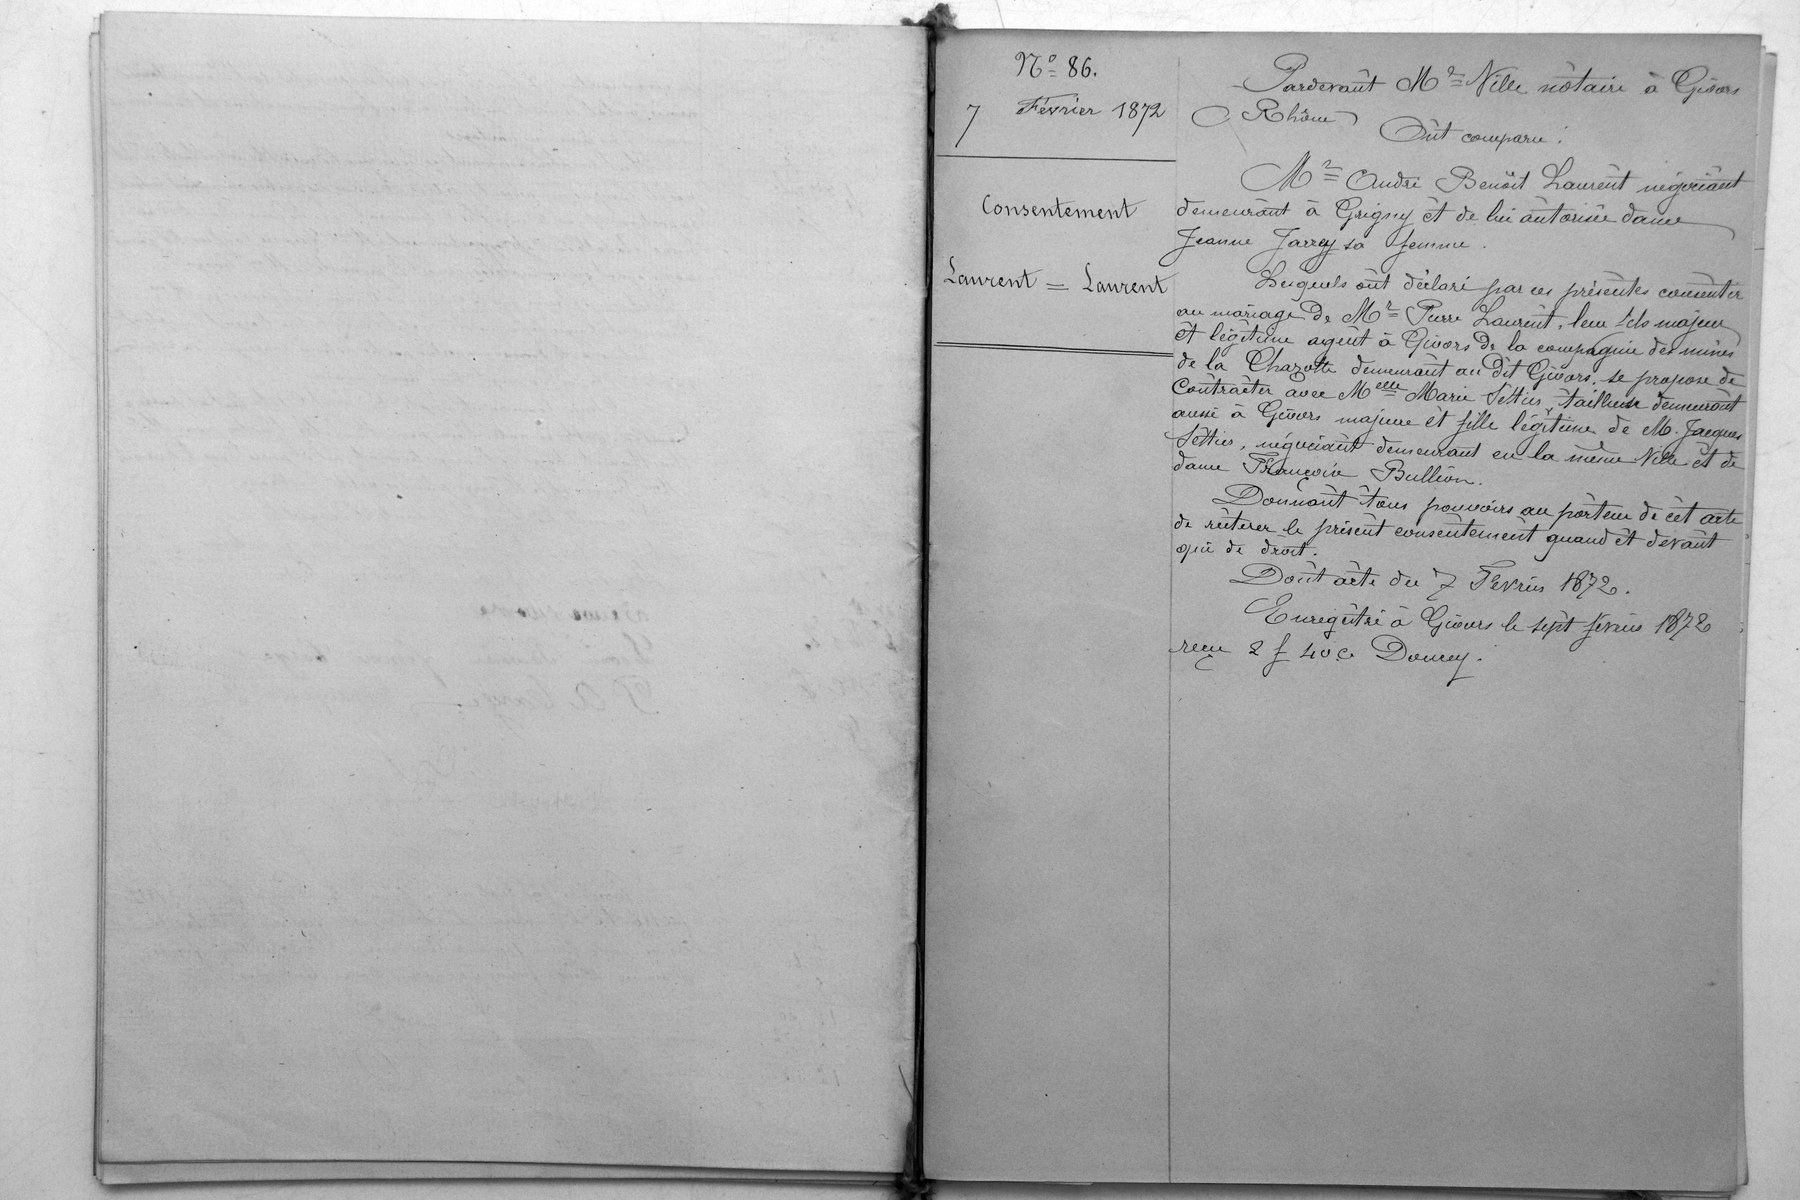 N° 86.
7 Février 1872
Consentement
Laurent = Laurent
Pardevant Mre Ville notaire à Givors
(Rhône)
Ont comparu :
Mr André Benoit Laurent négociant
demeurant à Grigny et de lui autorisée dame
Jeanne Jarrey sa femme.
Lesquels ont déclaré par ces présentes consentir
au mariage de Mr Pierre Laurent, leur fils majeur
et légitime agent à Givors de la compagnie des mines
de la Chazotte demeurant au dit Givors, se propose de
contracter avec Melle Marie Settier, tailleuse demeurant
aussi à Givors majeure et fille légitime de M. Jacques
Settier, négociant demeurant en la même Ville et de
dame Françoise Bullion.
Donnant tous pouvoirs au porteur de cet acte
de réitérer le présent consentement quand et devant
qui de droit.
Dont acte du 7 Février 1872.
Enregistré à Givors le sept février 1872
reçu 2 f 40 c